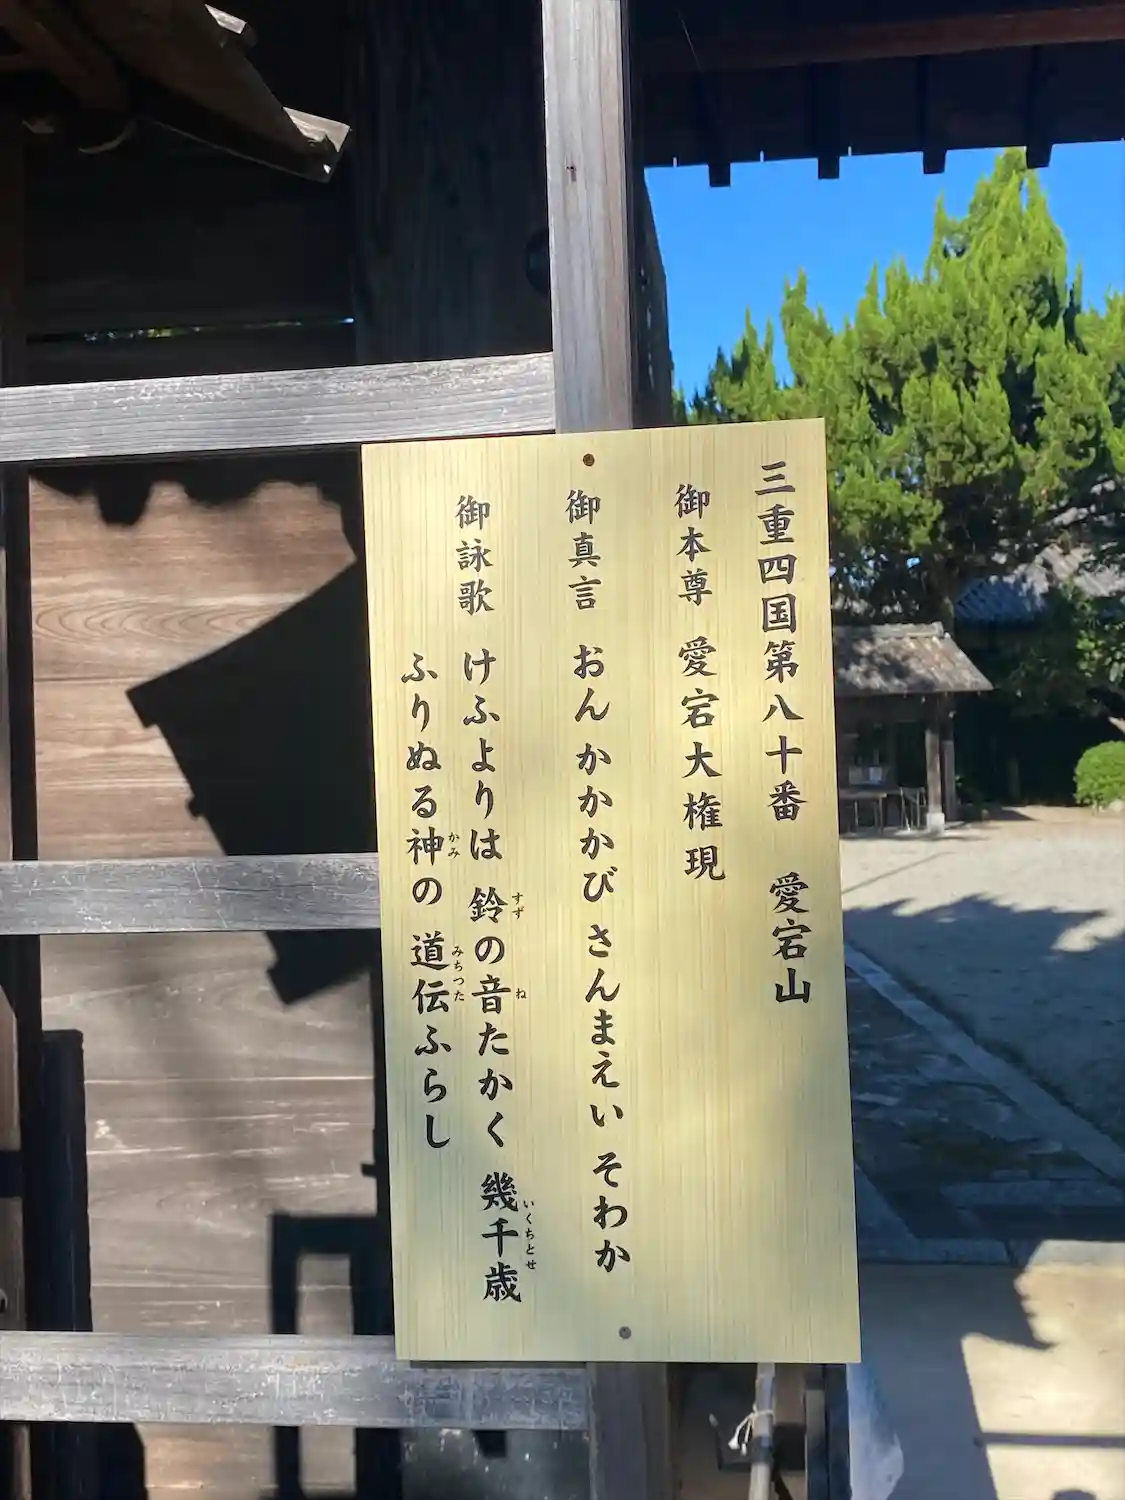 三重四国第八十番　愛宕山
御本尊　愛宕大権現
御真言　おん かかかび さんまえい そわか
御詠歌　けふよりは 鈴の音たかく 幾千歳
ふりぬる神の 道伝ふらし
すず
ね
いくちとせ
かみ
みちつた